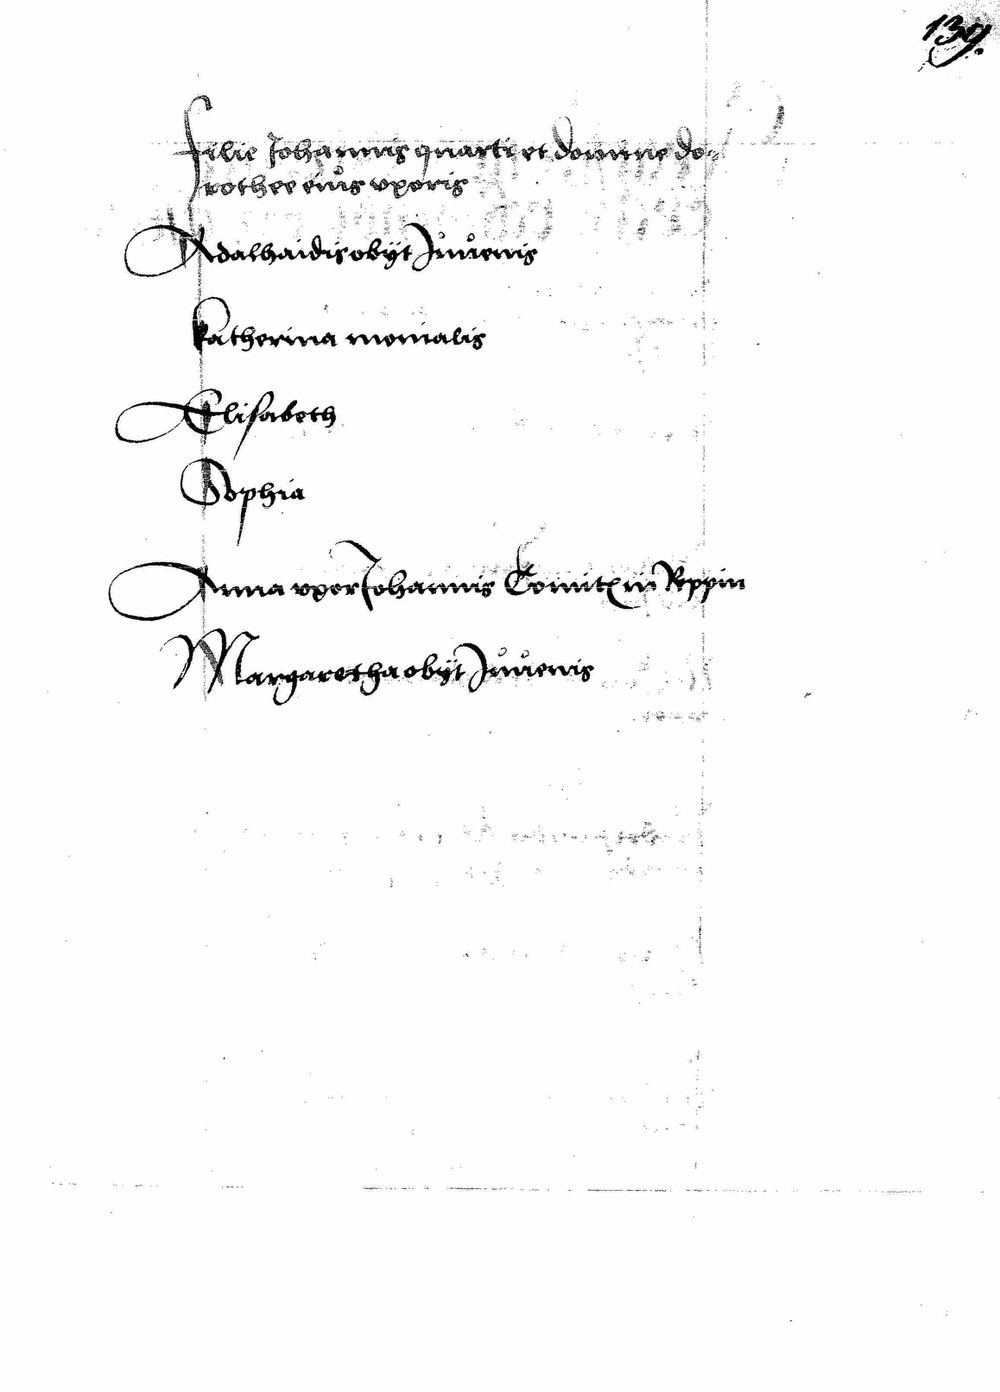 139.
Filie Johannis quarti et domine do-
rothee eius uxoris
Adalhaidis obijt Juvenis
Katherina monialis
Elisabeth
Sophia
Anna uxor Johannis Comit in Reppin
Margaretha obijt Juvenis